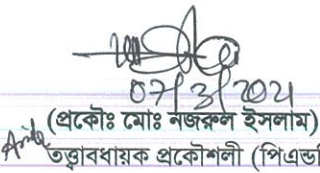 07/3/2021
(প্রকৌঃ মোঃ নজরুল ইসলাম)
তত্ত্বাবধায়ক প্রকৌশলী (পিএন্ড